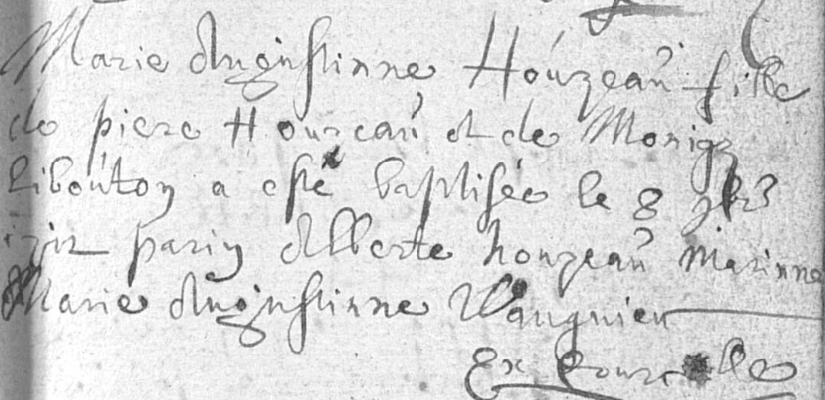 Marie Augustinne Houzeau fille
de piere Houzeau et de Moniqz
Libouton a esté baptisée le 8
parin Alberte houzeau Marinne
Marie Augustinne Wauquieu
Ex